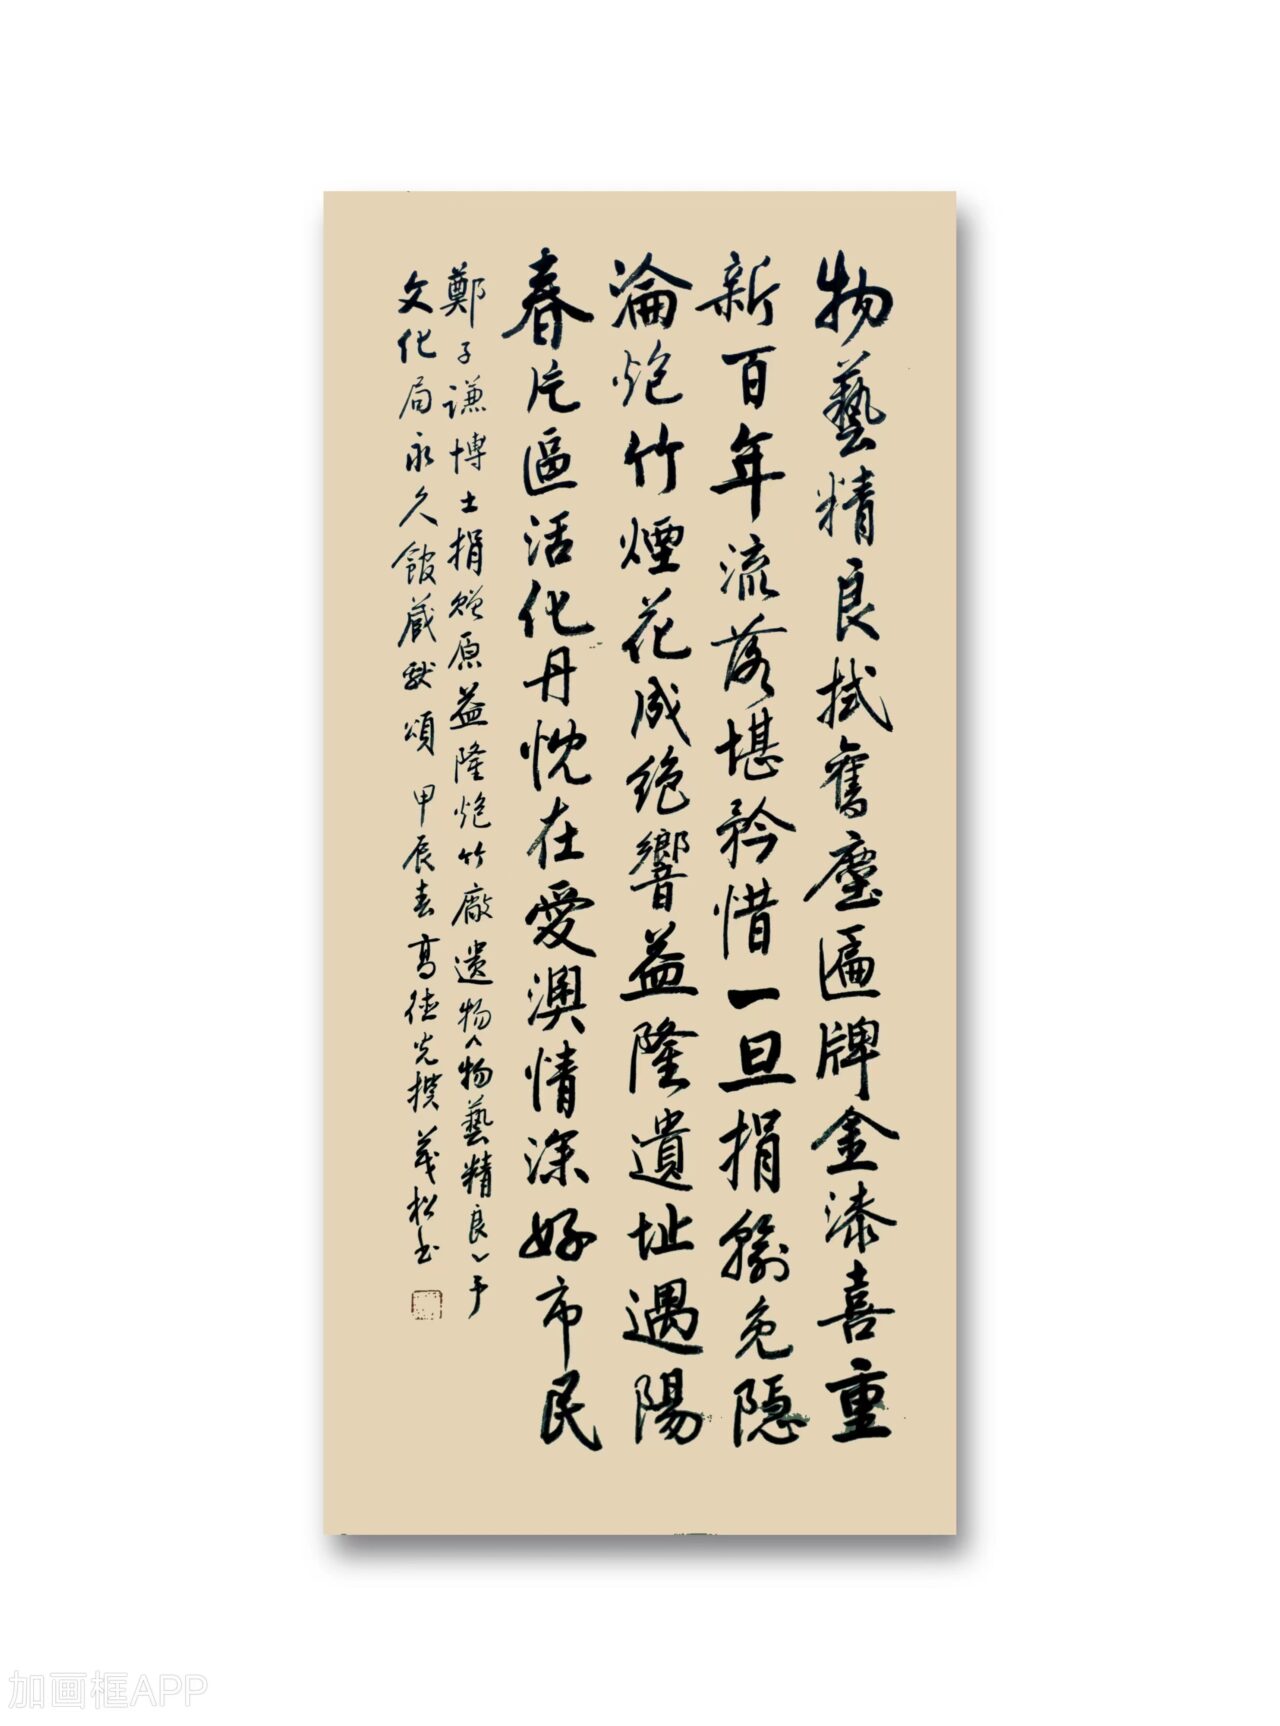 物藝精良拭舊塵匾牌金漆喜重
新百年流落堪矜惜一旦捐輸免隱
淪炮竹煙花成絕響益隆遺址遇陽
春片區活化丹忱在愛澳情深好市民
鄭子謙博士捐贈原益隆炮竹廠遺物︿物藝精良﹀予
文化局永久館藏獻頌 甲辰春高德光撰 義松书
加画框APP